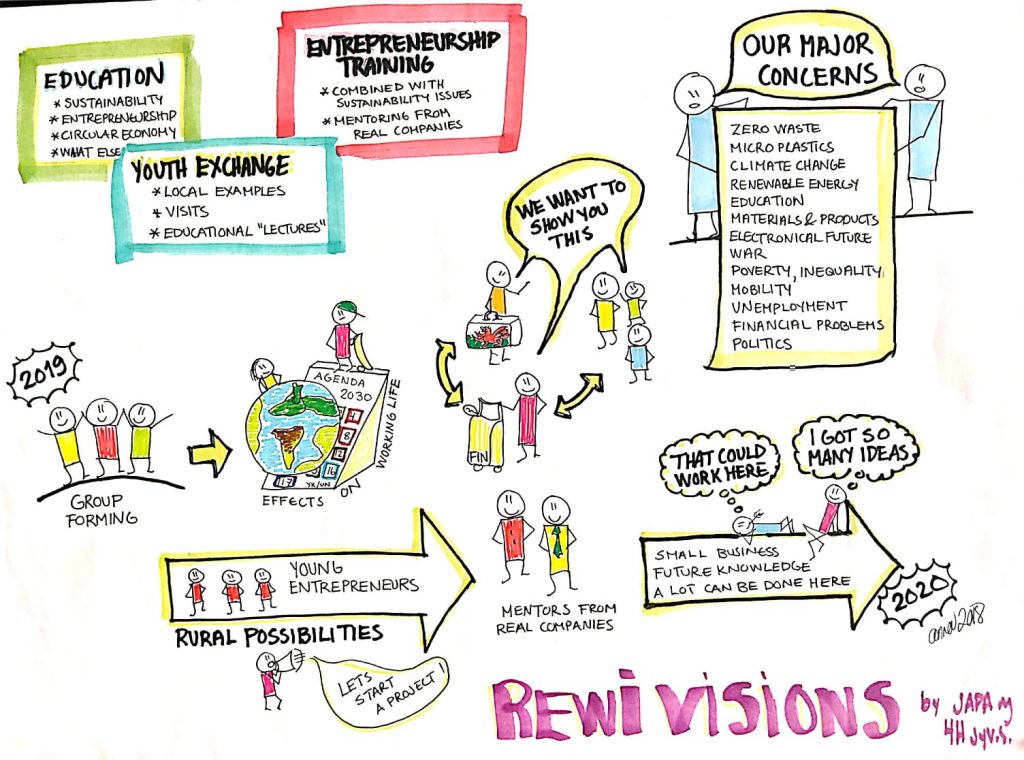 EDUCATION
* SUSTAINABILITY
* ENTREPRENEURSHIP
* CIRCULAR ECONOMY
* WHAT ELSE
ENTREPRENEURSHIP
TRAINING
* COMBINED WITH
SUSTAINABILITY ISSUES
* MENTORING FROM
REAL COMPANIES
YOUTH EXCHANGE
* LOCAL EXAMPLES
* VISITS
* EDUCATIONAL "LECTURES"
OUR MAJOR
CONCERNS
ZERO WASTE
MICRO PLASTICS
CLIMATE CHANGE
RENEWABLE ENERGY
EDUCATION
MATERIALS & PRODUCTS
ELECTRONICAL FUTURE
WAR
POVERTY, INEQUALITY,
MOBILITY
UNEMPLOYMENT
FINANCIAL PROBLEMS
POLITICS
WE WANT TO
SHOW YOU
THIS
2019
GROUP
FORMING
AGENDA
2030
4
8
12
16
17
YK/UN
EFFECTS ON WORKING LIFE
FIN
THAT COULD
WORK HERE
I GOT SO
MANY IDEAS
YOUNG
ENTREPRENEURS
RURAL POSSIBILITIES
LETS
START
A PROJECT!
MENTORS FROM
REAL COMPANIES
SMALL BUSINESS
FUTURE KNOWLEDGE
A LOT CAN BE DONE HERE
2020
2018
REWI VISIONS
by JAPA ry
4H Jyv.s.